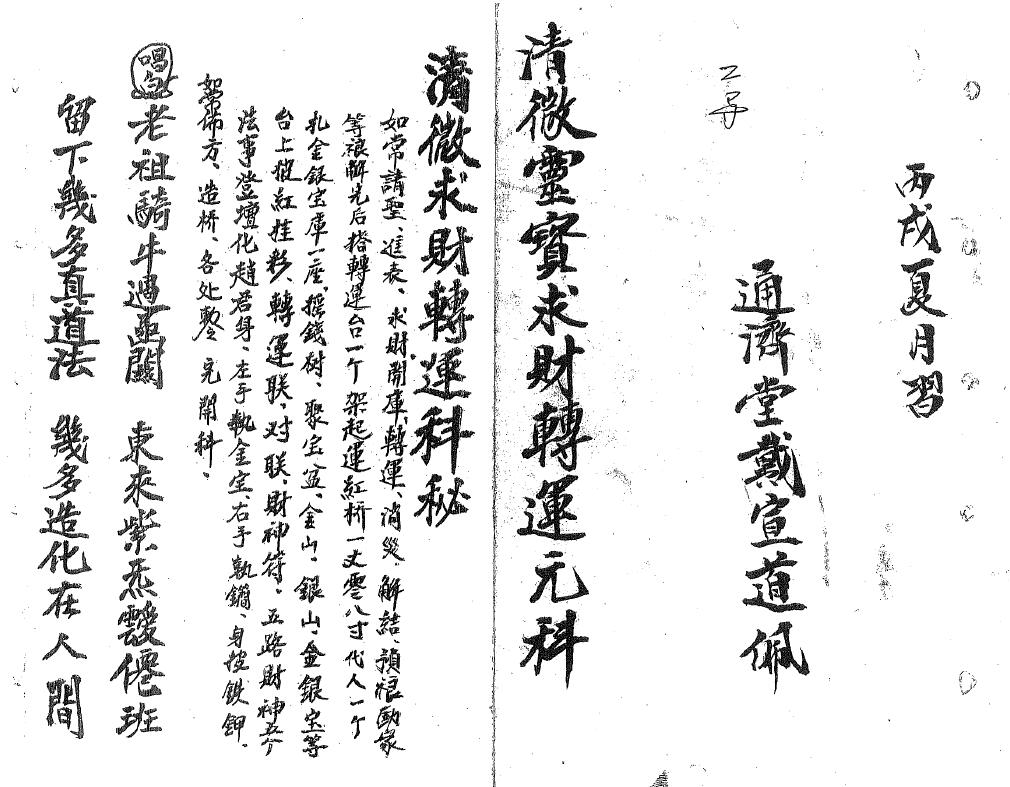 丙戌夏月習
通濟堂戴宣道佩
清微靈寶求財轉運元科
清微求財轉運科秘
如常請聖、進表、求財、開庫、轉運、消災、解結、預
等 解 先后搭轉運台一个 架起運紅桥一丈零八寸 代人一个
扎金銀宝庫一座、摇錢樹、聚宝盆、金山、銀山、金銀宝等
台上披紅挂彩、轉運联、对联、財神符、五路財神五个
法事登壇化趙君身、左手執金宝、右手執鐧、身披鉄钾、
如常佈方、造桥、各处 完開科、
唱 老祖騎牛過函關 東來紫炁靉僊班
留下幾多真道法 幾多造化在人間